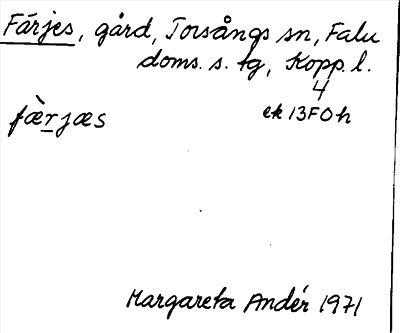 Färjes, gård, Torsångs sn, Falu
doms. s. tg, Kopp. l.
4
fæ̀rjæs
ek 13F0h
Margareta Andér 1971